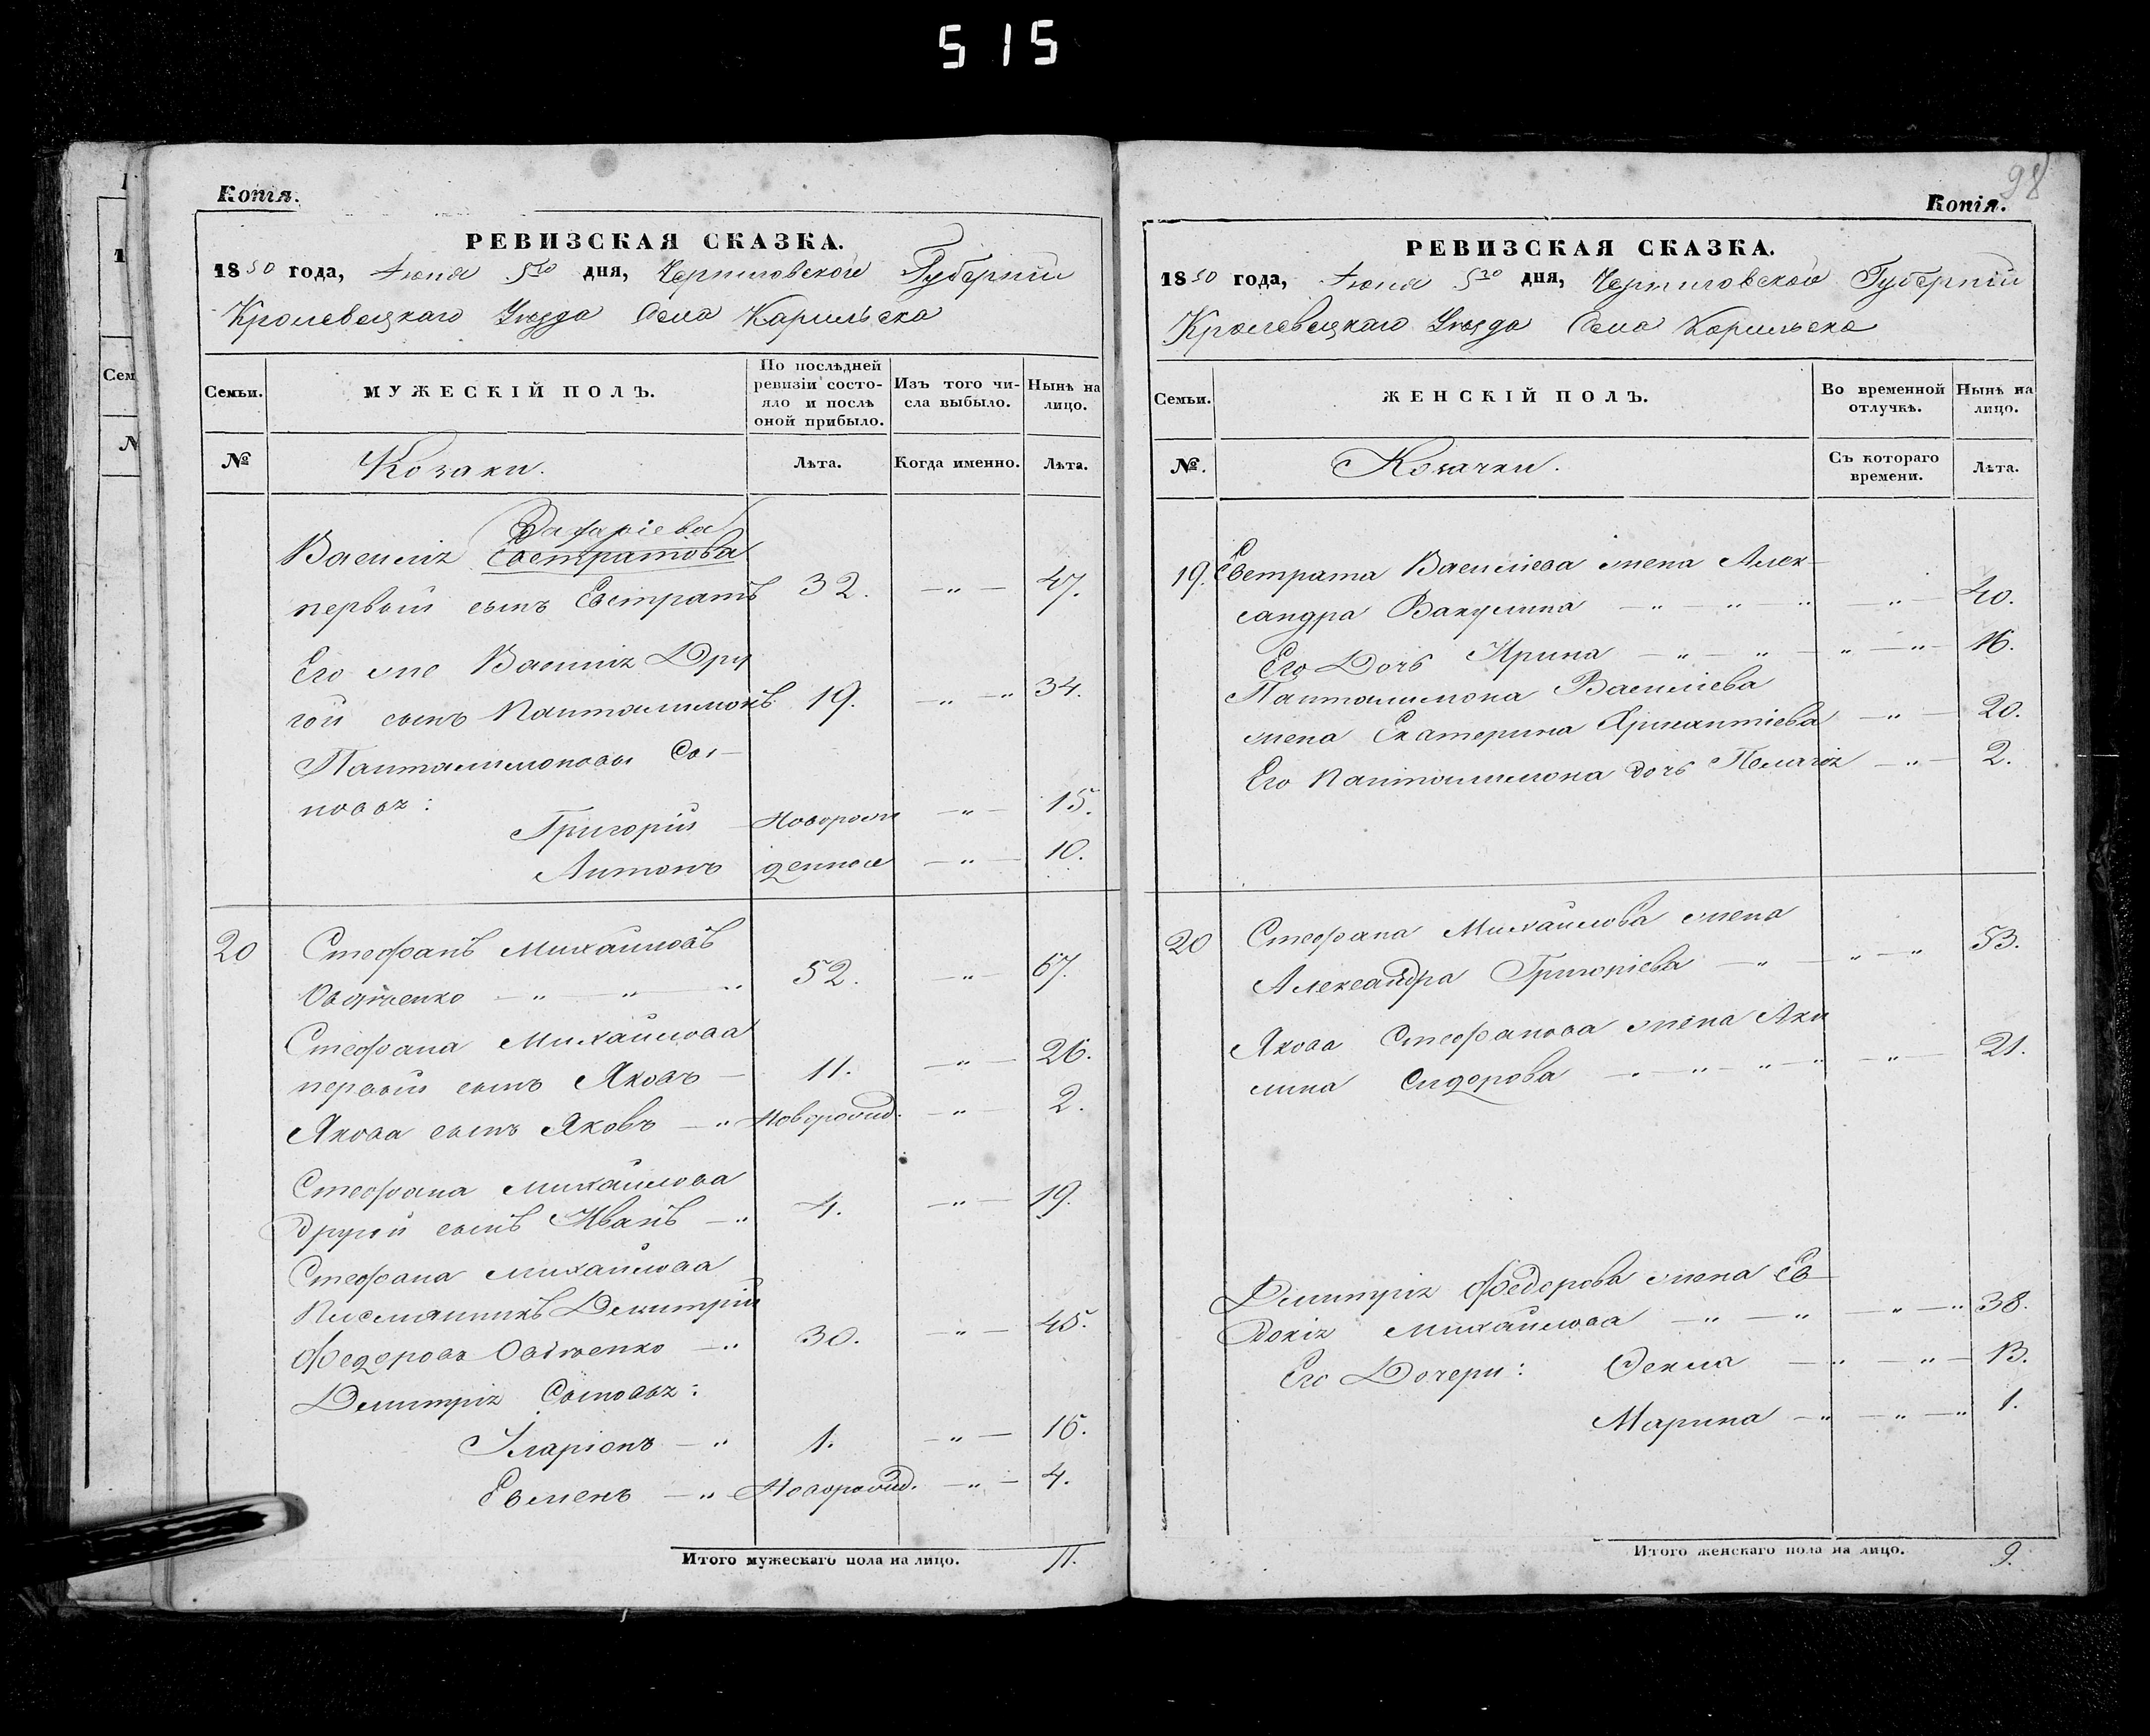 515
Копія.
РЕВИЗСКАЯ СКАЗКА.
1850 года, Июня 5го дня, Черниговской Губерніи
Кролевецкаго Уѣзда Села Карильска
Семьи.
МУЖЕСКІЙ ПОЛЪ.
По послѣдней ревизіи состо-
яло и послѣ
оной прибыло.
Изъ того чи-
сла выбыло.
Нынѣ на
лицо.
№
Козаки.
Лѣта.
Когда именно.
Лѣта.
Захаріева
Василія Евстратова
первый сынъ Евстратъ 32. — " — 47.
Его же Василія Дру
гой сынъ Панталимонъ 19. — " — " 34.
Панталимоновы Сы-
новья:
Григорій Новорож — " — 15.
Антонъ денные — " — 10.
20 Стефанъ Михайловъ
Овдѣенко — " — " — " 52. — " — 67.
Стефана Михайлова
первый сынъ Яковъ — 11. — " — 26.
Якова сынъ Яковъ — " Новорожд. — " — 2.
Стефана Михайлова
другой сынъ Иванъ — " 4. — " — 19.
Стефана Михайлова
Племянникъ Димитрій
Федоровъ — " 30. — " — 45.
Димитрія Сыновья:
Іларіонъ — " 1. — " — 16.
Евменъ — " Новорожд. — " — 4.
Итого мужескаго пола на лицо. 11.
98
Копія.
РЕВИЗСКАЯ СКАЗКА.
1850 года, Июня 5го дня, Черниговской Губерніи
Кролевецкаго Уѣзда Села Карильска
Семьи.
ЖЕНСКІЙ ПОЛЪ.
Во временной
отлучкѣ.
Нынѣ на
лицо.
№.
Козачки.
Съ котораго
времени.
Лѣта.
19. Евстрата Василіева жена Алек-
сандра Вакулина — " — " — " " — 40.
Его Дочь Ирина — " — " — " — " — 16.
Панталимона Василіева
жена Екатерина — " — 20.
Его Панталимона дочь Пелагія — " — 2.
20 Стефана Михайлова жена
Александра Григоріева — " — " — " 53.
Якова Стефанова жена Аку
лина Сидорова — " — " — " — " — " — 21.
Димитрія Федорова жена Ев-
докія Михайлова — " — " — " — " 38.
Его Дочери: Фекла — " — " — 13.
Марина — " — " — " 1.
Итого женскаго пола на лицо. 9.